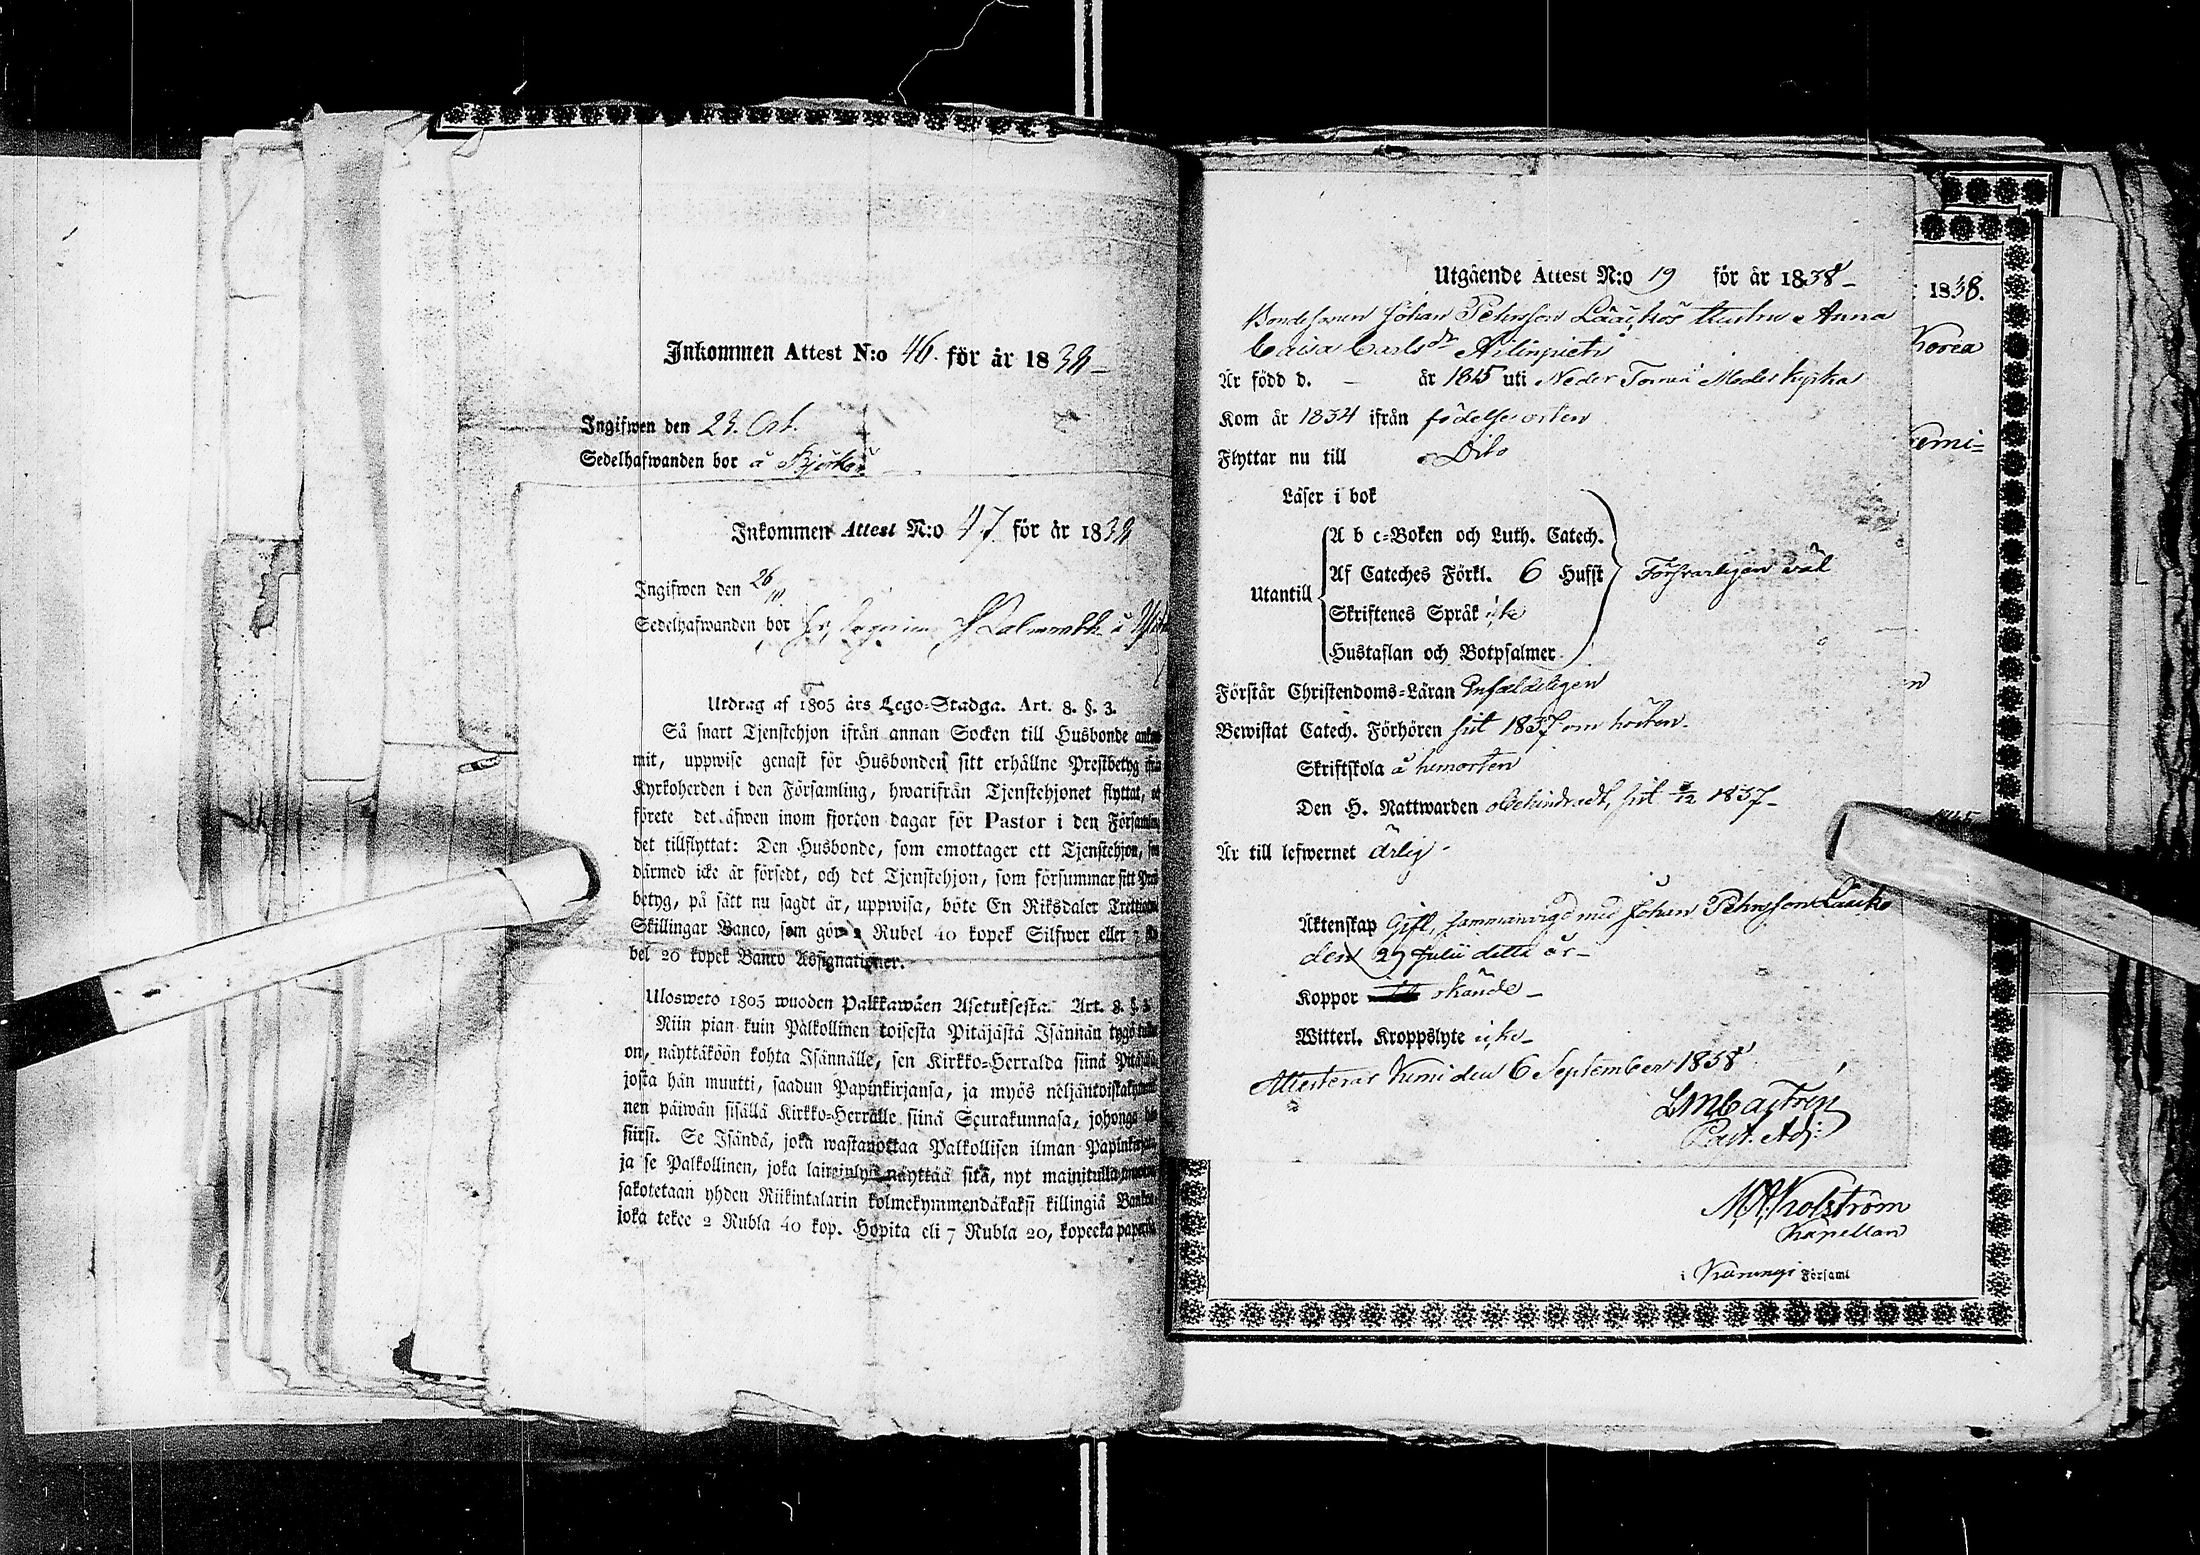 Inkommen Attest N:o 46. för år 1838
Ingifwen den 23. Oct.
Sedelhafwanden bor å Björkön
Inkommen Attest N:o 47 för år 1838
Ingifwen den 26/10.
Sedelhafwanden bor
Utdrag af 1805 års Lego-Stadga. Art. 8. §. 3.
Så snart Tjenstehjon ifrån annan Socken till Husbonde
mit, uppwise genast för Husbonden sitt erhållne Prestbetyg ifrå
Kyrkoherden i den Församling, hwarifrån Tjenstehjonet flyttat,
förete det äfwen inom fjorton dagar för Pastor i den Församlin
det tillflyttat: Den Husbonde, som emottager ett Tjenstehjon, som
därmed icke är försedt, och det Tjenstehjon, som försummar sitt Pres
betyg, på sätt nu sagdt är, uppwisa, böte En Riksdaler Trettiotwå
Skillingar Banco, som gör 2 Rubel 40 kopek Silfwer eller 7 Ru
bel 20 kopek Banco Assignationer.
Ulosweto 1805 wuoden Palkkawäen Asetuksesta. Art. 8. §. 3.
Niin pian kuin Palkollinen toisesta Pitäjästä Isännän tygö tullu
on, näyttäköön kohta Isännälle, sen Kirkko-Herralda siinä Pitäjäsä
josta hän muutti, saadun Papinkirjansa, ja myös neljäntoistakymme
nen päiwän sisällä Kirkko-Herralle siinä Seurakunnasa, johonga hän
siirsi. Se Isändä, joka wastanottaa Palkollisen ilman Papinkirjata
ja se Palkollinen, joka laiminlyö näyttää sitä, nyt mainitulla
sakotetaan yhden Riikintalarin kolmekymmendäkaksi killingiä Banko
joka tekee 2 Rubla 40 kop. Hopita eli 7 Rubla 20, kopeeka paperia
Utgående Attest N:o 19 för år 1838
Bondesonen Johan Pehrsson Lääkkös Hustru Anna
Caisa Carlsdr Ailinpieti
Är född d. – år 1815 uti Neder Torneå Moderkyrka
Kom år 1834 ifrån födelse orten
Flyttar nu till Dito
Läser i bok
Utantill
A b c-Boken och Luth. Catech.
Af Cateches Förkl. 6 Husst Försvarligen väl
Skriftenes Språk icke
Hustaflan och Botpsalmer
Förstår Christendoms-Läran Enfaldeligen
Bewistat Catech. Förhören sist 1837 om hösten
Skriftskola å hemorten
Den H. Nattwarden obehindradt, sist 1837
Är till lefwernet Ärlig
Äktenskap Gift, sammanvigd med Johan Pehrsson Lääkkö
den 29 Julii detta år
Koppor skände
Witterl. Kroppslyte icke
Attesteras Kemi den 6 September 1838
LM Castrén
Past. Adj:
1838.
Korea
Kemi-
Kolström
Kapellan
i Karungi Församl